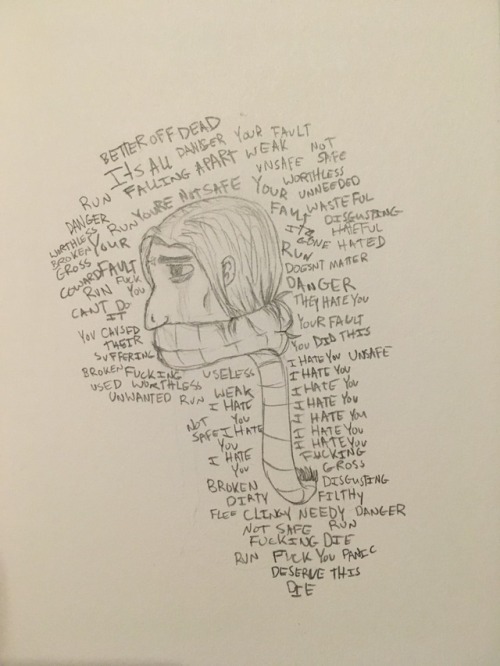 BETTER OFF DEAD
ITS ALL DANGER YOUR FAULT
FALLING APART WEAK NOT
UNSAFE SAFE
RUN YOURE NOT SAFE YOUR WORTHLESS
UNNEEDED
DANGER RUN FAULT WASTEFUL
WORTHLESS YOUR DISGUSTING
BROKEN ITS HATEFUL
GROSS GONE HATED
COWARD FAULT RUN
RUN FUCK YOU DOESNT MATTER
CANT DO DANGER
IT THEY HATE YOU
YOU CAUSED YOUR FAULT
THEIR YOU DID THIS
SUFFERING I HATE YOU UNSAFE
BROKEN FUCKING USELESS I HATE YOU
USED WORTHLESS I HATE YOU
UNWANTED RUN WEAK I HATE YOU
I HATE I HATE YOU
NOT YOU I HATE YOU
SAFE I HATE HATE YOU
YOU FUCKING
I HATE GROSS
YOU DISGUSTING
BROKEN FILTHY
DIRTY
FLEE CLINGY NEEDY DANGER
NOT SAFE RUN
FUCKING DIE
RUN FUCK YOU PANIC
DESERVE THIS
DIE